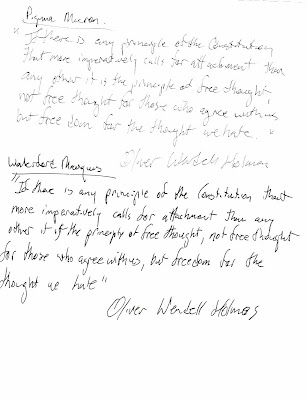 Pigma Micron:
"If there is any principle of the Constitution
that more imperatively calls for attachment than
any other it is the principle of free thought,
not free thought for those who agree with us
but freedom for the thought we hate."
Oliver Wendell Holmes
Waterford Marquis
"If there is any principle of the Constitution that
more imperatively calls for attachment than any
other it if the principle of free thought, not free thought
for those who agree with us, but freedom for the
thought we hate"
Oliver Wendell Holmes